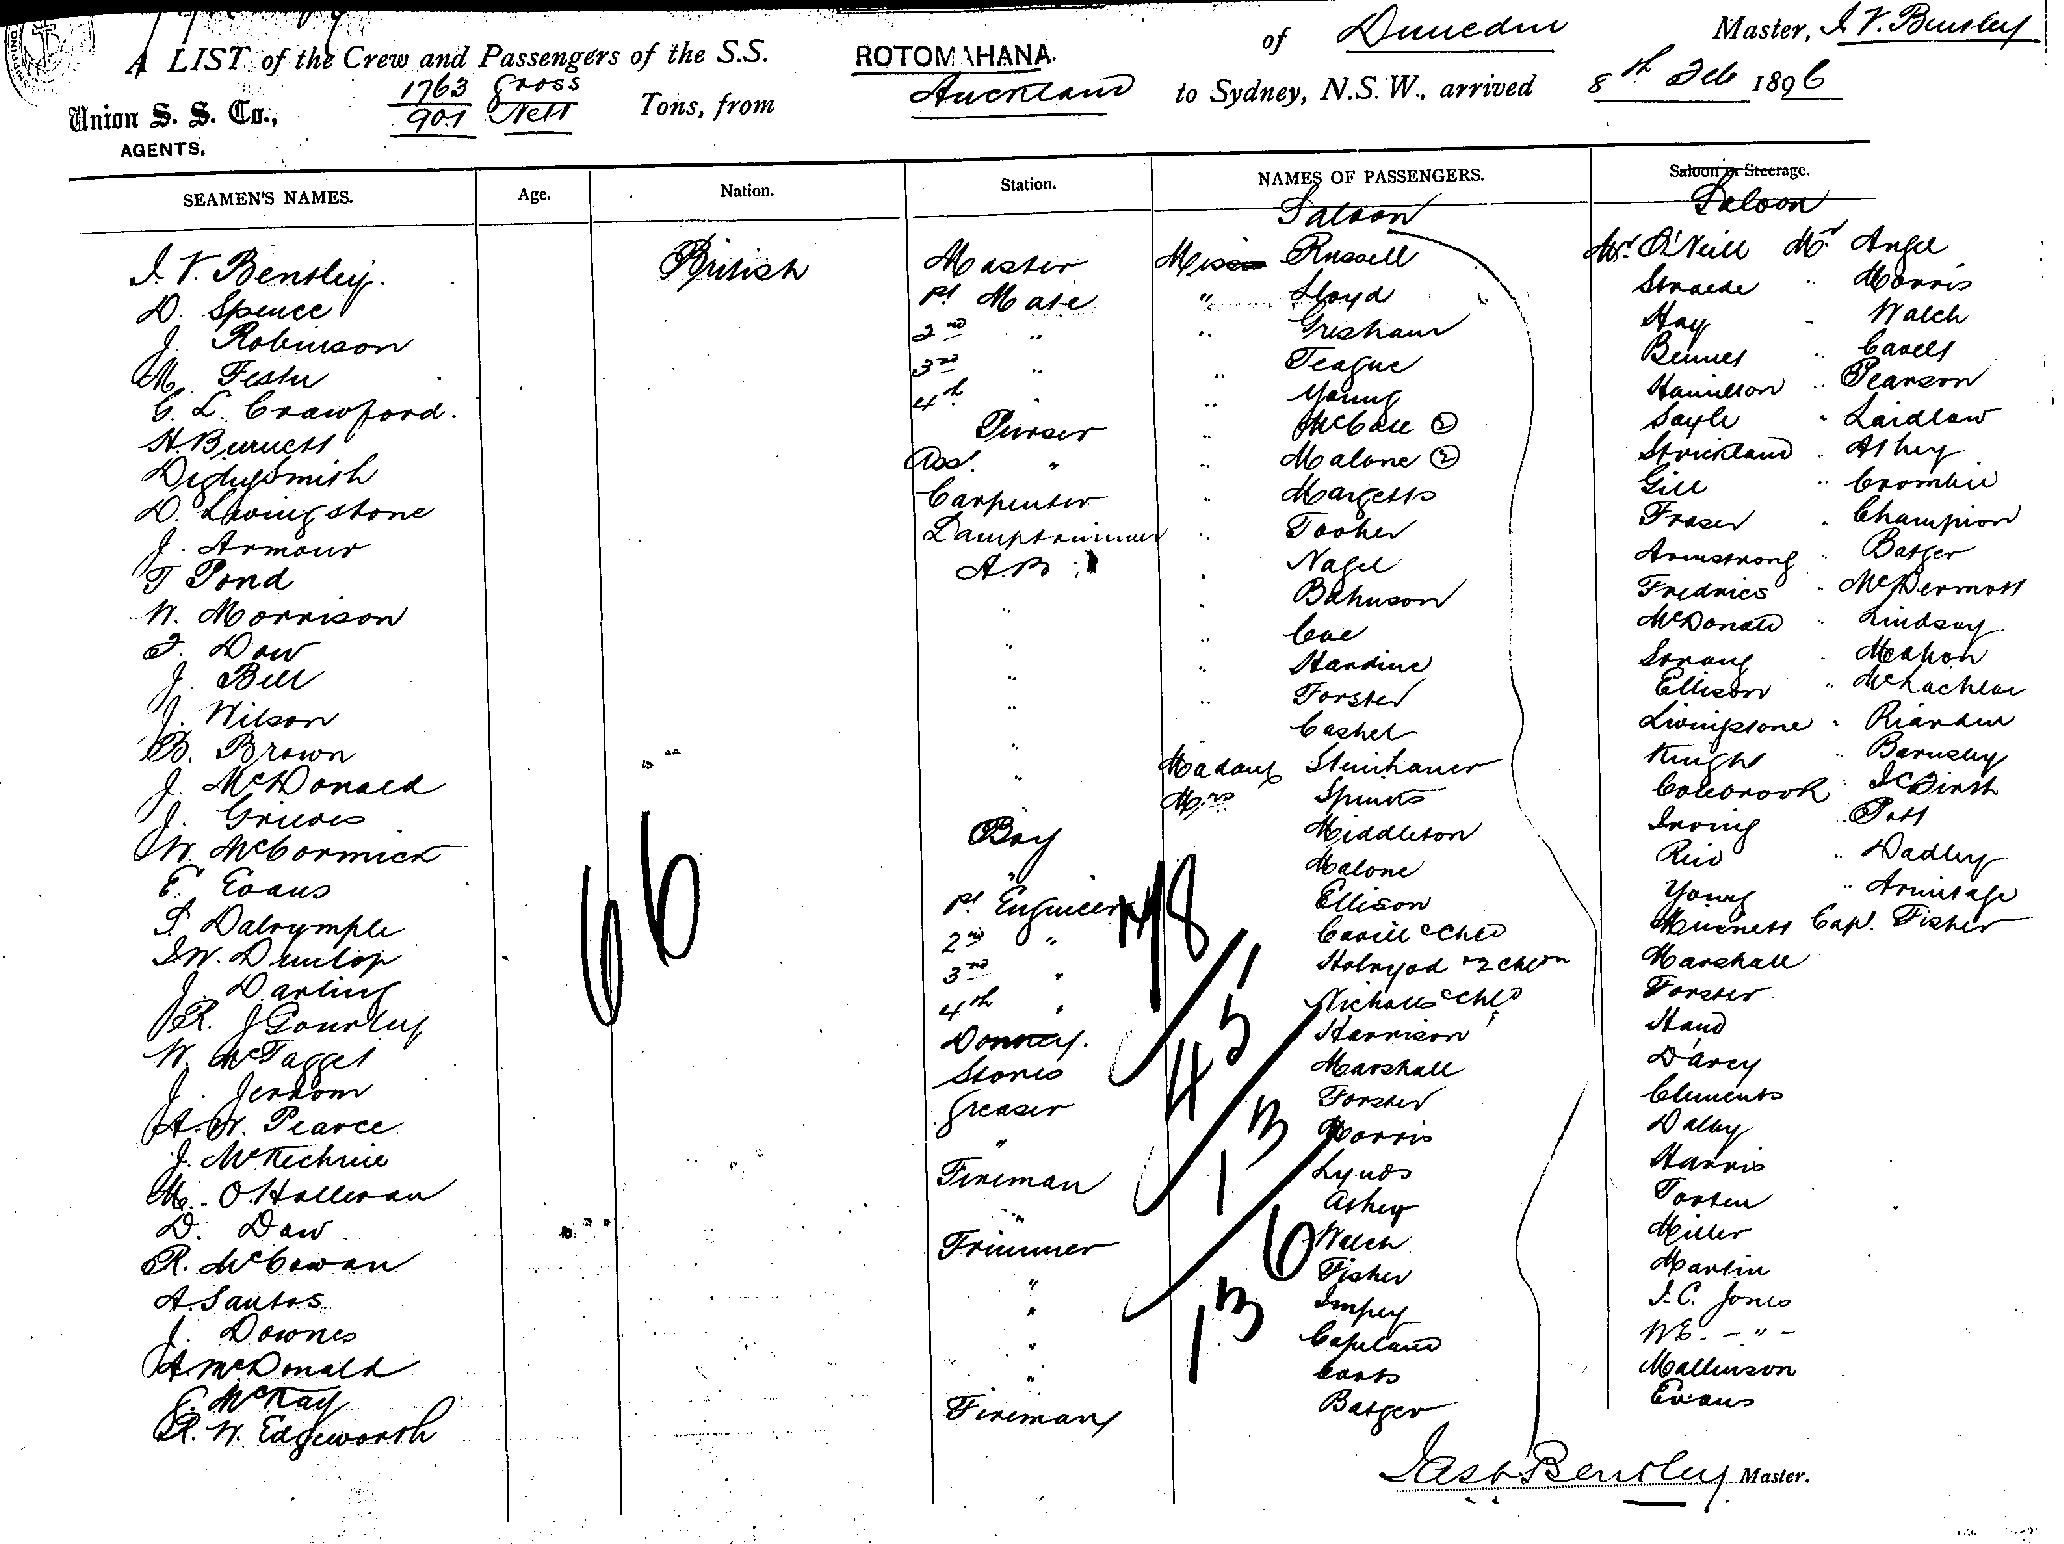 A LIST of the Crew and Passengers of the S.S. ROTOMAHANA. of Dunedin Master, J. V. Bensley
Union S. S. Co., AGENTS. 1763 Gross 901 Nett Tons, from Auckland to Sydney, N.S.W., arrived 8th Feb 1896
SEAMEN'S NAMES. Age. Nation. Station. NAMES OF PASSENGERS. Saloon or Steerage.
Saloon Saloon
J. V. Bensley. British Master Miss Russell Mr. O'Neill Mr Angel
D. Spence 1st Mate " Lloyd Straede " Morris
J. Robinson 2nd " " Gresham Hay " Walch
M. 3rd " " Teague Bennet " Cavell
G. L. Crawford. 4th " " Young Hamilton " Pearson
H. Burnett Purser " McCall 2 Sayle " Laidlaw
Digby Smith Ass. " " Malone 2 Strickland " Athey
D. Livingstone Carpenter " Margetts Gill " Crombie
J. Armour Lamptrimmer " Tooher Fraser " Champion
T Pond A.B " Nagel Armstrong " Batger
W. Morrison " " Bahnson Fredrics " McDermott
J. Daw " " Coe McDonald " Lindsay
J. Bell " " Hardine Strang " Mahon
J. Wilson " " Forster Ellison " McLachlan
B. Brown " Cashel Livingstone " Riordan
J. McDonald " Madam Steinhauer Knight " Barnsley
J. Grieves Mrs Spinks Colebrook "
W. McCormick Boy Middleton Irving " Pott
E. Evans " Malone Reid " Dadley
S Dalrymple 1st Engineer Ellison Young " Armitage
J. W. Dunlop 2nd " Cavill & Chld Cap. Fisher
J. Darling 3rd " Holryod & 2 Chln Marshall
R. J Gourley 4th " Nicholls & Chld Forster
W. McTagget Donkey. Harrison Hand
J. Jerrom Stores Marshall D'Arcy
A. W. Pearce Greaser Forster Clements
J. McKechnie " Morris Dalby
M. O'Halleran Fireman Lynds Harris
D. Daw " Athey
R. McCowan Trimmer Walch Miller
A. Santos " Fisher Martin
J. Downes " Impey J. C. Jones
A McDonald " Copeland W E. - " -
E. McKay " Coats Mallinson
R. W. Edgeworth Fireman Batger Evans
66
78
45
1
13
6
13
Jas V Bensley Master.